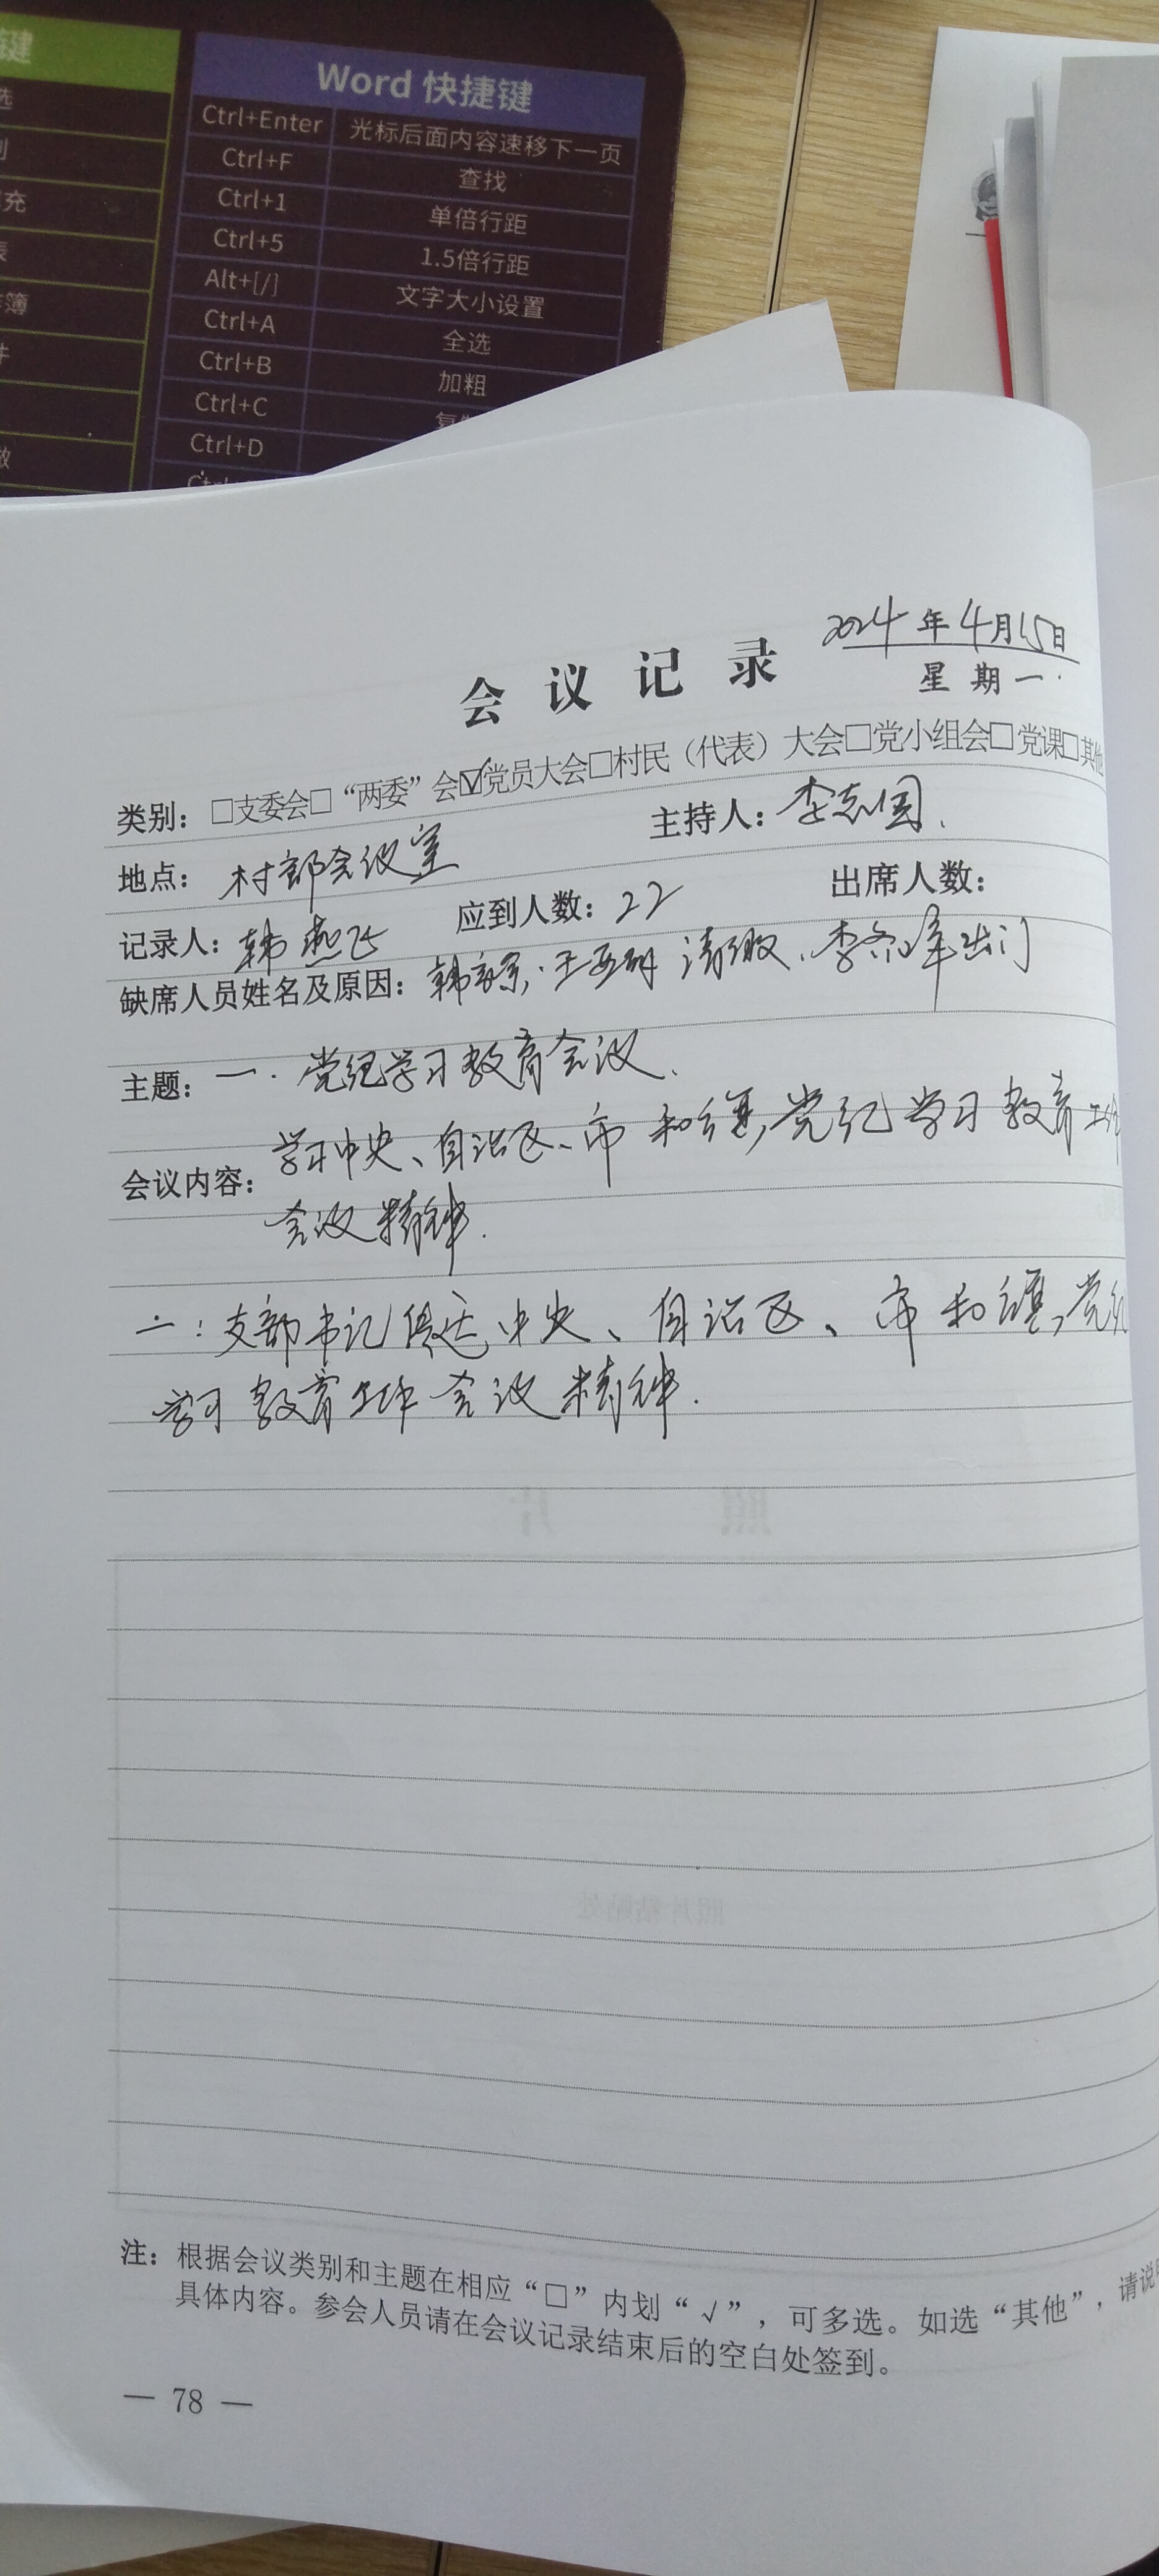 键
选
充
簿
Word 快捷键
Ctrl+Enter 光标后面内容速移下一页
Ctrl+F 查找
Ctrl+1 单倍行距
Ctrl+5 1.5倍行距
Alt+[/] 文字大小设置
Ctrl+A 全选
Ctrl+B 加粗
Ctrl+C
Ctrl+D
2024年4月15日
会议记录
星期一
类别：□支委会□“两委”会☑党员大会□村民（代表）大会□党小组会□党课□其他
地点：村部会议室 主持人：李志国
记录人：韩燕飞 应到人数：22 出席人数：
缺席人员姓名及原因：韩 王 请假、李 峰出门
主题：一. 党纪学习教育会议.
会议内容：学习中央、自治区、市和 党纪学习教育工作
会议精神.
二：支部书记传达中央、自治区、市和 党纪
学习教育工作会议精神.
照片
照片粘贴处
注：根据会议类别和主题在相应“□”内划“√”，可多选。如选“其他”，请说明
具体内容。参会人员请在会议记录结束后的空白处签到。
— 78 —